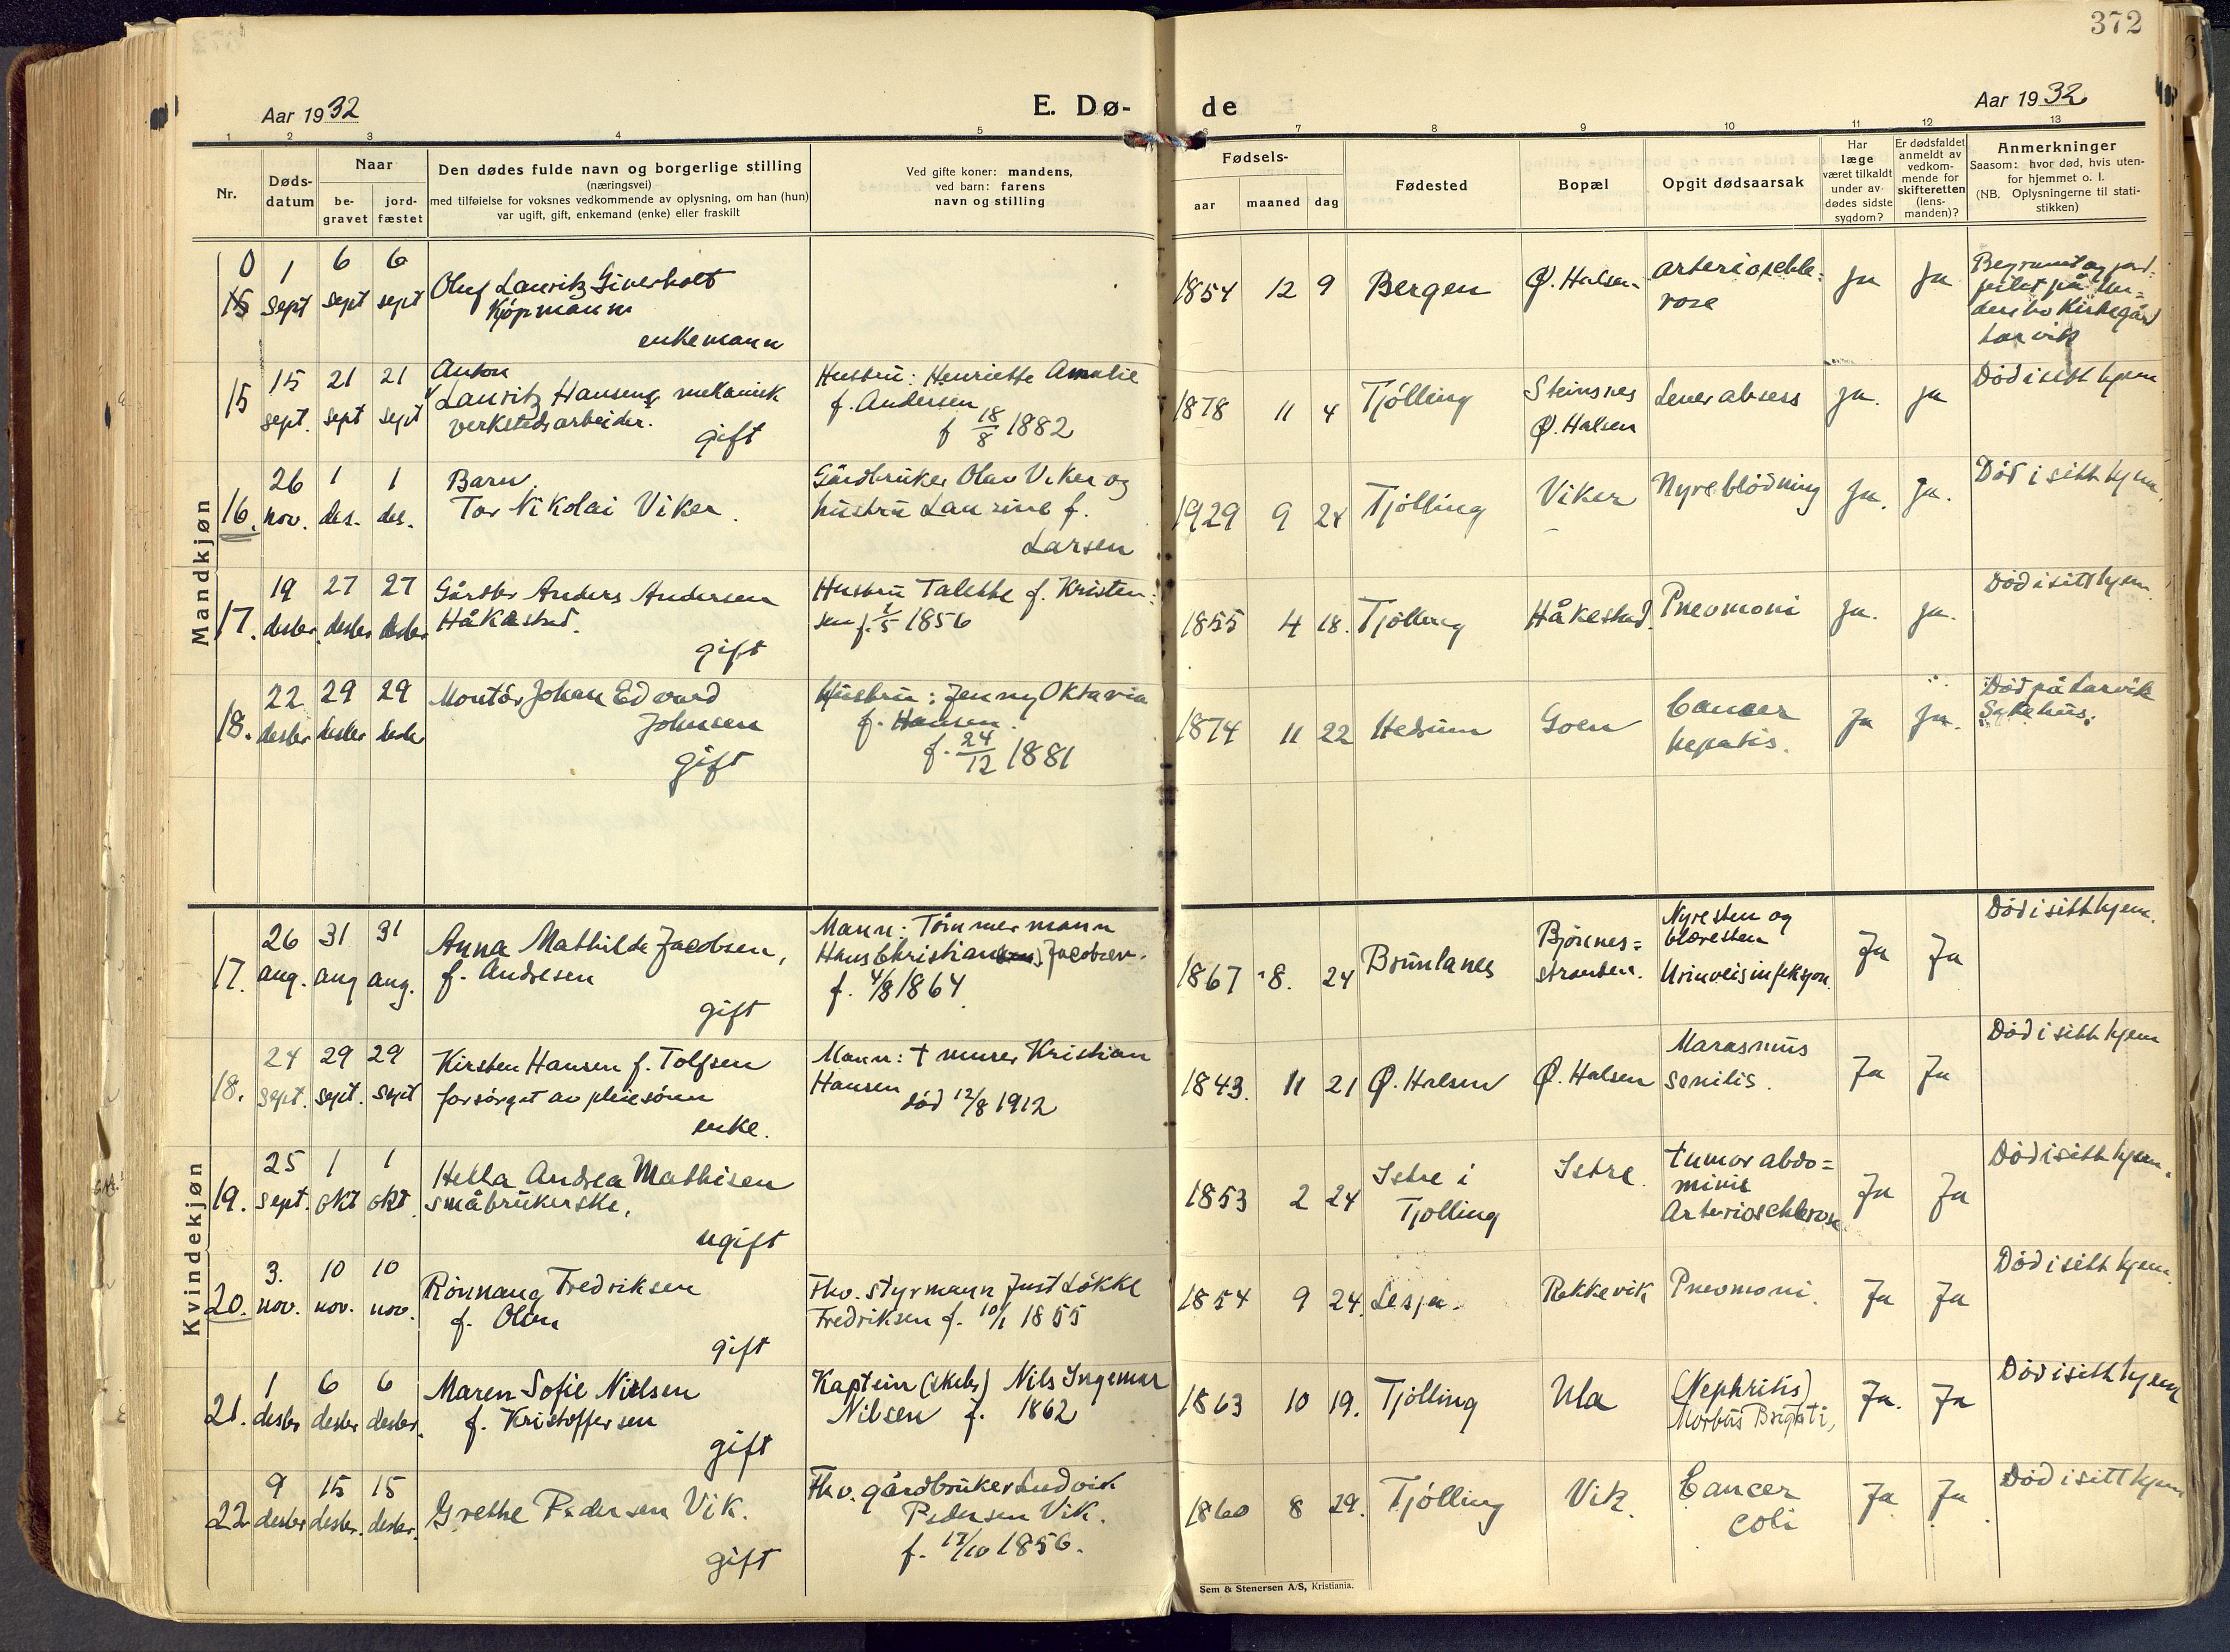 372
Aar 1932
E. Dø-
de
Aar 1932
1 2 3 4 5 6 7 8 9 10 11 12 13
Nr.
Døds-
datum
Naar
be-
gravet
jord-
fæstet
Den dødes fulde navn og borgerlige stilling
(næringsvei)
med tilføielse for voksnes vedkommende av oplysning, om han (hun)
var ugift, gift, enkemand (enke) eller fraskilt
Ved gifte koner: mandens,
ved barn: farens
navn og stilling
Fødsels-
aar maaned dag
Fødested
Bopæl
Opgit dødsaarsak
Har
læge
været tilkaldt
under av-
dødes sidste
sygdom?
Er dødsfaldet
anmeldt av
vedkom-
mende for
skifteretten
(lens-
manden)?
Anmerkninger
Saasom: hvor død, hvis uten-
for hjemmet o. l.
(NB. Oplysningerne til stati-
stikken)
Mandkjøn
0
15
1
sept
6
sept
6
sept
Oluf Lauritz Giverholt
Kjøpmann
enkemann
1854 12 9
Bergen
Ø. Halsen
arteriosckle-
rose
Ja
Ja
Begravet og jord-
festet på
Kirkegård
Larvik
15
15
sept.
21
sept
21
sept
Anton
Lauritz Hansen, mekanisk
verkstedsarbeider.
gift
Hustru: Henriette Amalie
f. Andersen
f 18/8 1882
1878 11 4
Tjølling
Steinsnes
Ø. Halsen
Lever absess
Ja.
Ja
Død i sitt hjem
16.
26
nov.
1
des.
1
des.
Barn
Tor Nikolai Viker.
Gårdbruker Olav Viker og
hustru Laurine f.
Larsen
1929 9 24
Tjølling
Viker
Nyreblødning
Ja.
Ja.
Død i sitt hjem.
17.
19
desbr
27
desbr
27
desbr
Gårdbr Anders Andersen
Håkestad.
gift
Hustru Talette f. Kristen-
sen f. 1/5 1856
1855 4 18.
Tjølling
Håkestad.
Pneomoni
Ja.
Ja.
Død i sitt hjem
18.
22
desbr
29
desbr
29
desbr
Montør Johan Edvard
Johnsen
gift
Hustru: Jenny Oktavia
f. Hansen.
f. 24/12 1881
1874 11 22
Hedrum
Goen
Cancer
hepatis.
Ja
Ja.
Død på Larvik
Sykehus.
Kvindekjøn
17.
26
aug.
31
aug
31
aug.
Anna Mathilde Jacobsen,
f. Andresen
gift
Mann: Tømmermann
Hans Christian Jacobsen.
f. 4/8 1864
1867 8. 24
Brunlanes
Bjønnes-
stranden.
Nyresten og
blæresten
Urinveisinfeksjon.
Ja
Ja
Død i sitt hjem.
18.
24
sept.
29
sept.
29
sept
Kirsten Hansen f. Tolfsen
forsørget av pleiesønn
enke.
Mann: † murer Kristian
Hansen
død 12/8 1912
1843. 11 21
Ø. Halsen
Ø. Halsen
Marasmus
senilis.
Ja
Ja
Død i sitt hjem
19.
25
sept.
1
okt
1
okt.
Hella Andrea Mathisen
småbrukerske,
ugift
1853 2 24
Istre i
Tjølling
Istre
tumor abdo-
minis
Arteriosklerose
Ja
Ja
Død i sitt hjem.
20.
3.
nov.
10
nov.
10
nov.
Rønnaug Fredriksen
f. Olsen
gift
Fhv. styrmann Just Løkke
Fredriksen f. 10/1 1855
1854 9 24.
Lesja.
Rekkevik
Pneomoni.
Ja
Ja
Død i sitt hjem.
21.
1
desbr
6
desbr
6
desbr.
Maren Sofie Nielsen
f. Kristoffersen
gift
Kaptein (skibs) Nils Ingemar
Nilsen f. 1862
1863 10 19.
Tjølling
Ula
(Nephritis)
Morbus Brighti,
Ja.
Ja
Død i sitt hjem
22
9
desbr
15
desbr.
15
desbr.
Grethe Pedersen Vik.
gift
Fhv. gårdbruker Ludvik
Pedersen Vik.
f. 17/10 1856.
1860 8 29.
Tjølling
Vik.
Cancer
coli
Ja
Ja
Død i sitt hjem
Sem & Stenersen A/S, Kristiania.